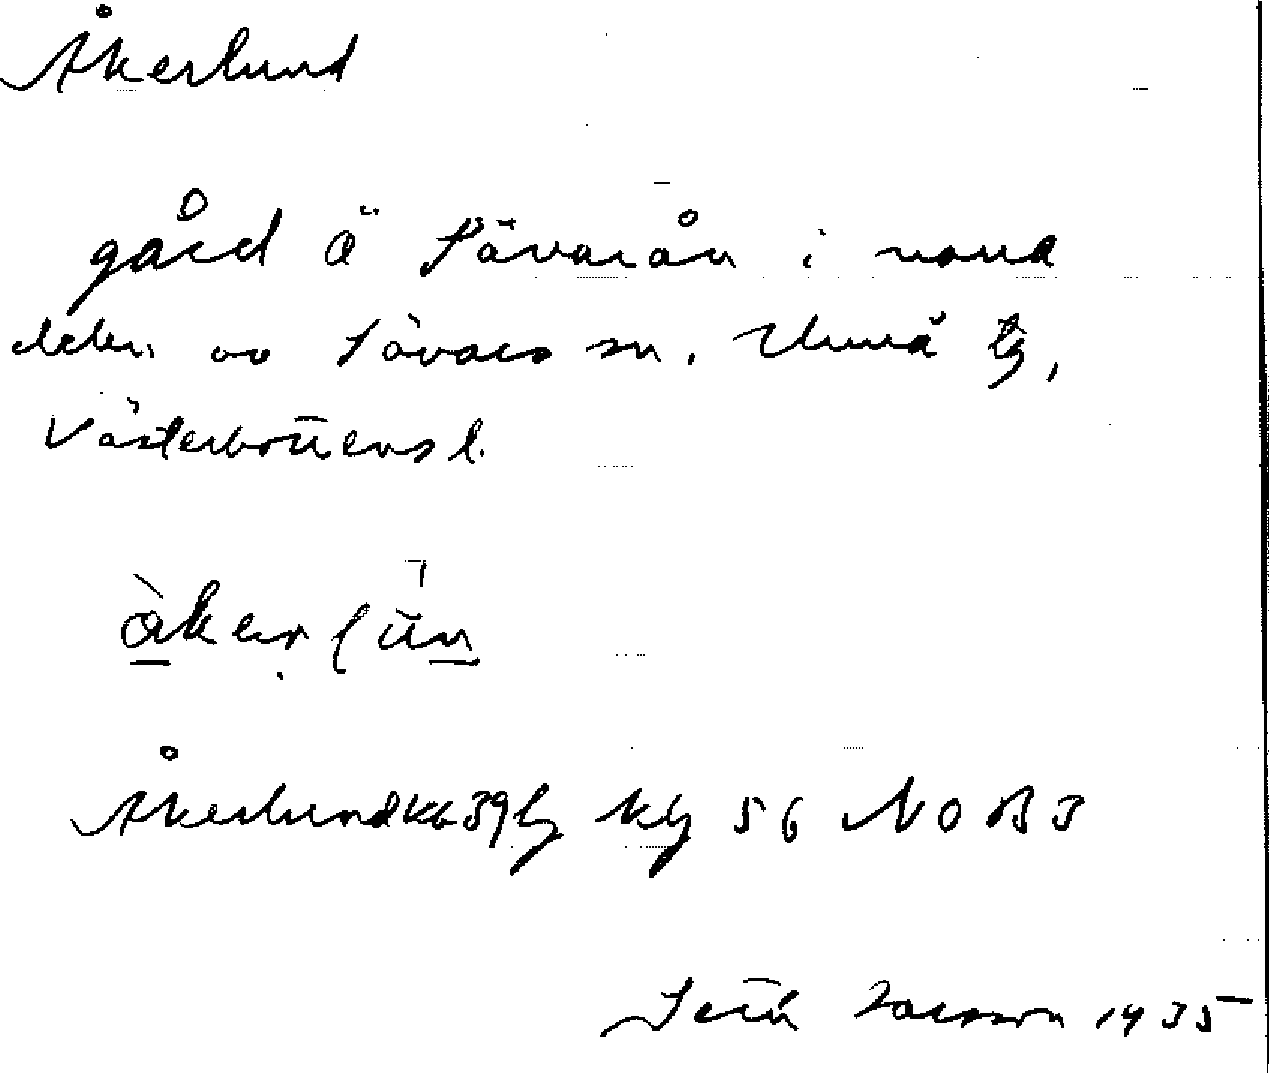 Åkerlund
gård Ö Sävarån i norra
delen av Sävars sn. Umeå tg,
Västerbottens l.
åkerlun
Åkerlund kb 39 kg 56 NO B3
Larsson 1935